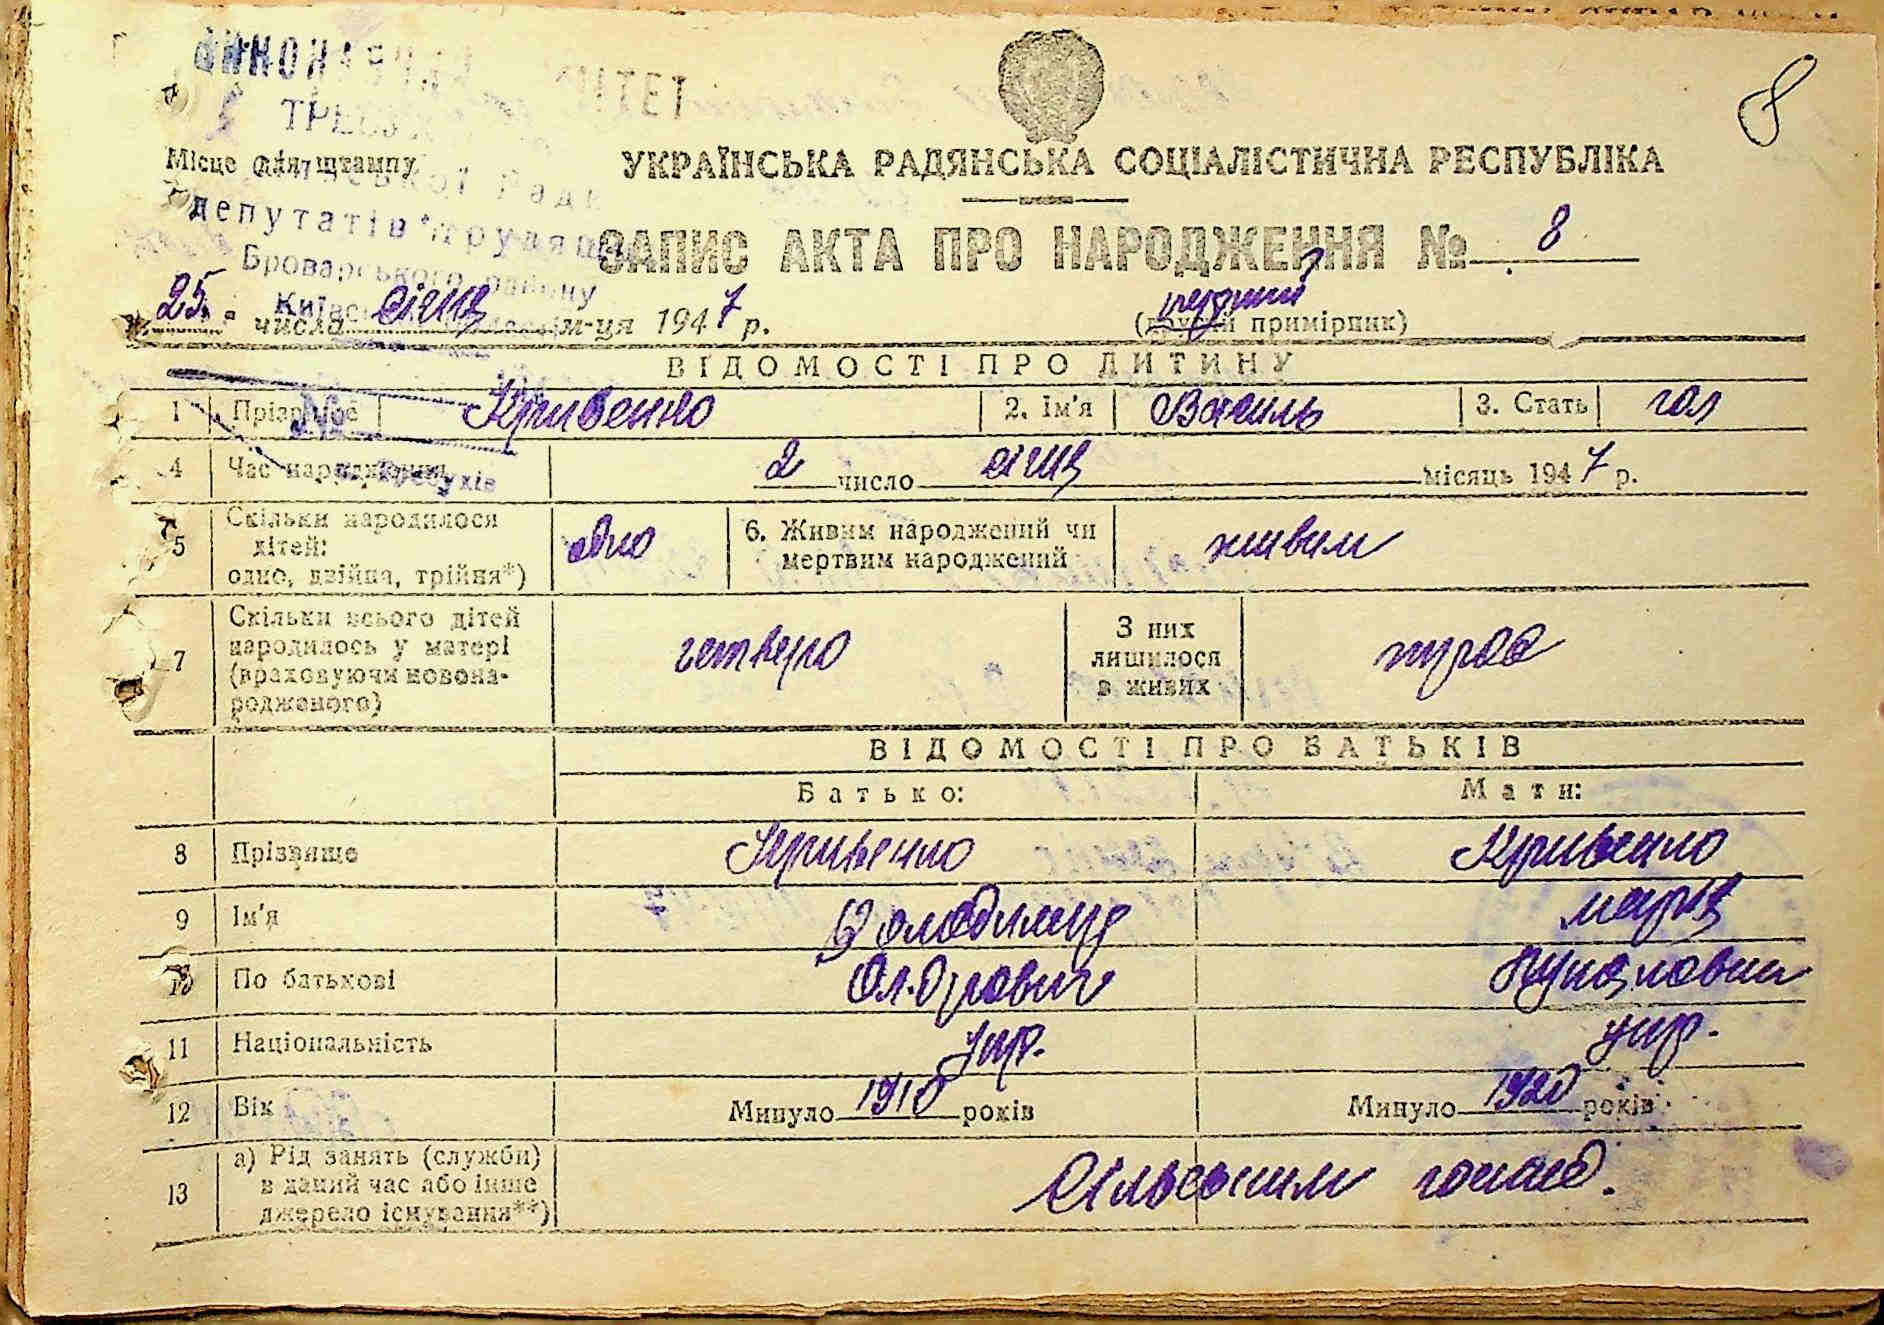 8
ВИКОНАВЧИЙ КОМІТЕТ
Місце для штампу
депутатів трудящих
Броварського району
УКРАЇНСЬКА РАДЯНСЬКА СОЦІАЛІСТИЧНА РЕСПУБЛІКА
ЗАПИС АКТА ПРО НАРОДЖЕННЯ № 8
25. числа січня м-ця 1947 р.
перший
(другий примірник)
ВІДОМОСТІ ПРО ДИТИНУ
1 Прізвище Кривенко 2. Ім'я Василь 3. Стать чол
4 Час народження 2 число січня місяць 1947 р.
5 Скільки народилося дітей: одно, двійня, трійня*) одно 6. Живим народжений чи мертвим народжений живим
7 Скільки всього дітей народилось у матері (враховуючи новонародженого) четверо З них лишилося в живих троє
ВІДОМОСТІ ПРО БАТЬКІВ
Батько: Мати:
8 Прізвище Кривенко Кривенко
9 Ім'я Володимир Марія
10 По батькові
11 Національність укр. укр.
12 Вік Минуло 1910 років Минуло 1920 років
13 а) Рід занять (служби) в даний час або інше джерело існування**) Сільським